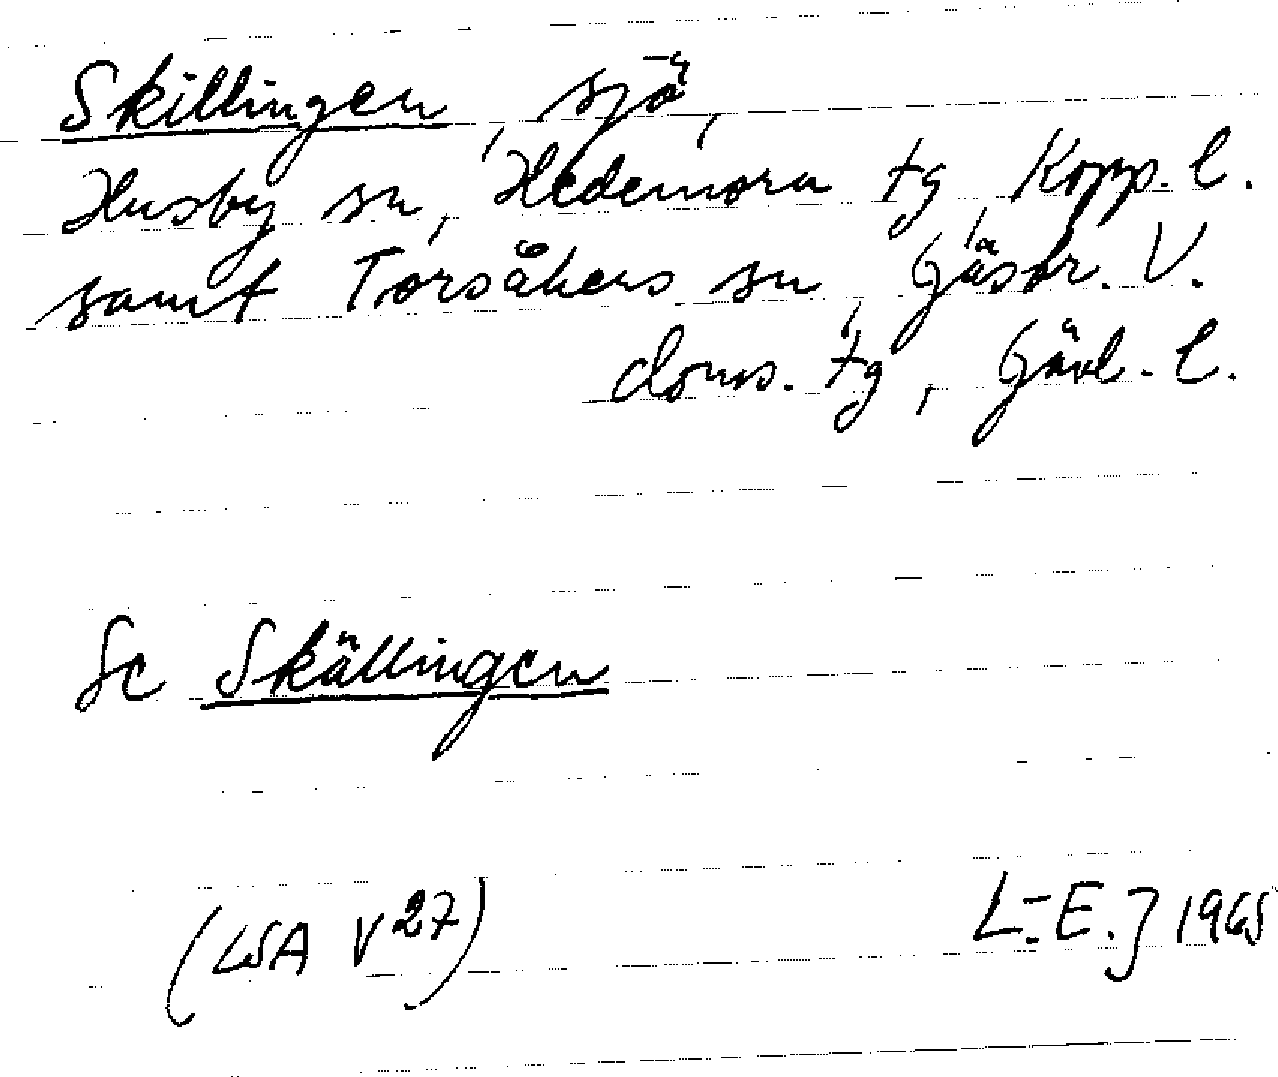 Skillingen, sjö,
Husby sn, Hedemora tg, Kopp. l.
samt Torsåkers sn, Gästr. V.
doms. tg, Gävl. l.
Se Skällingen
(LSA V27) L.-E.J 1965